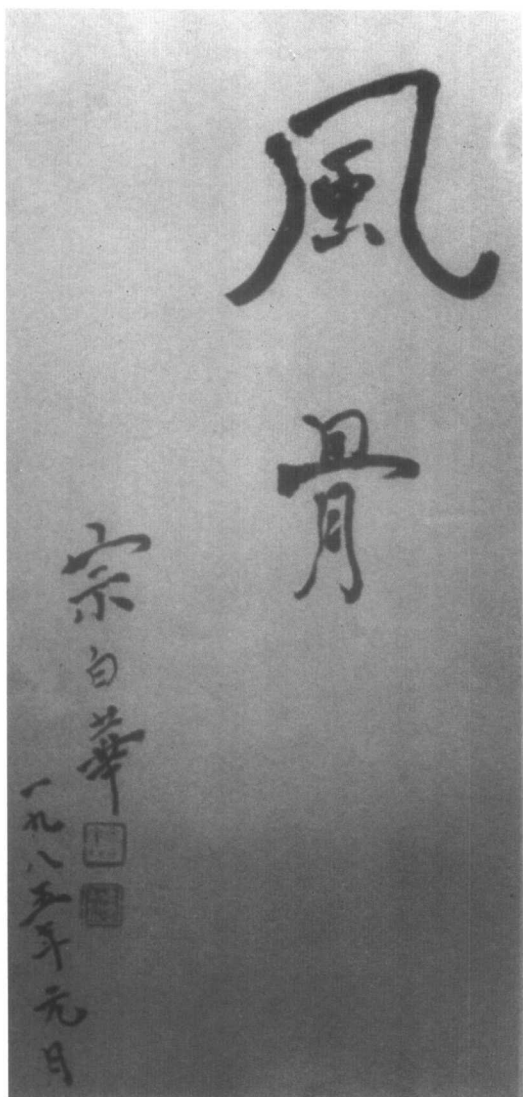 風骨
宗白華
一九八五年元日